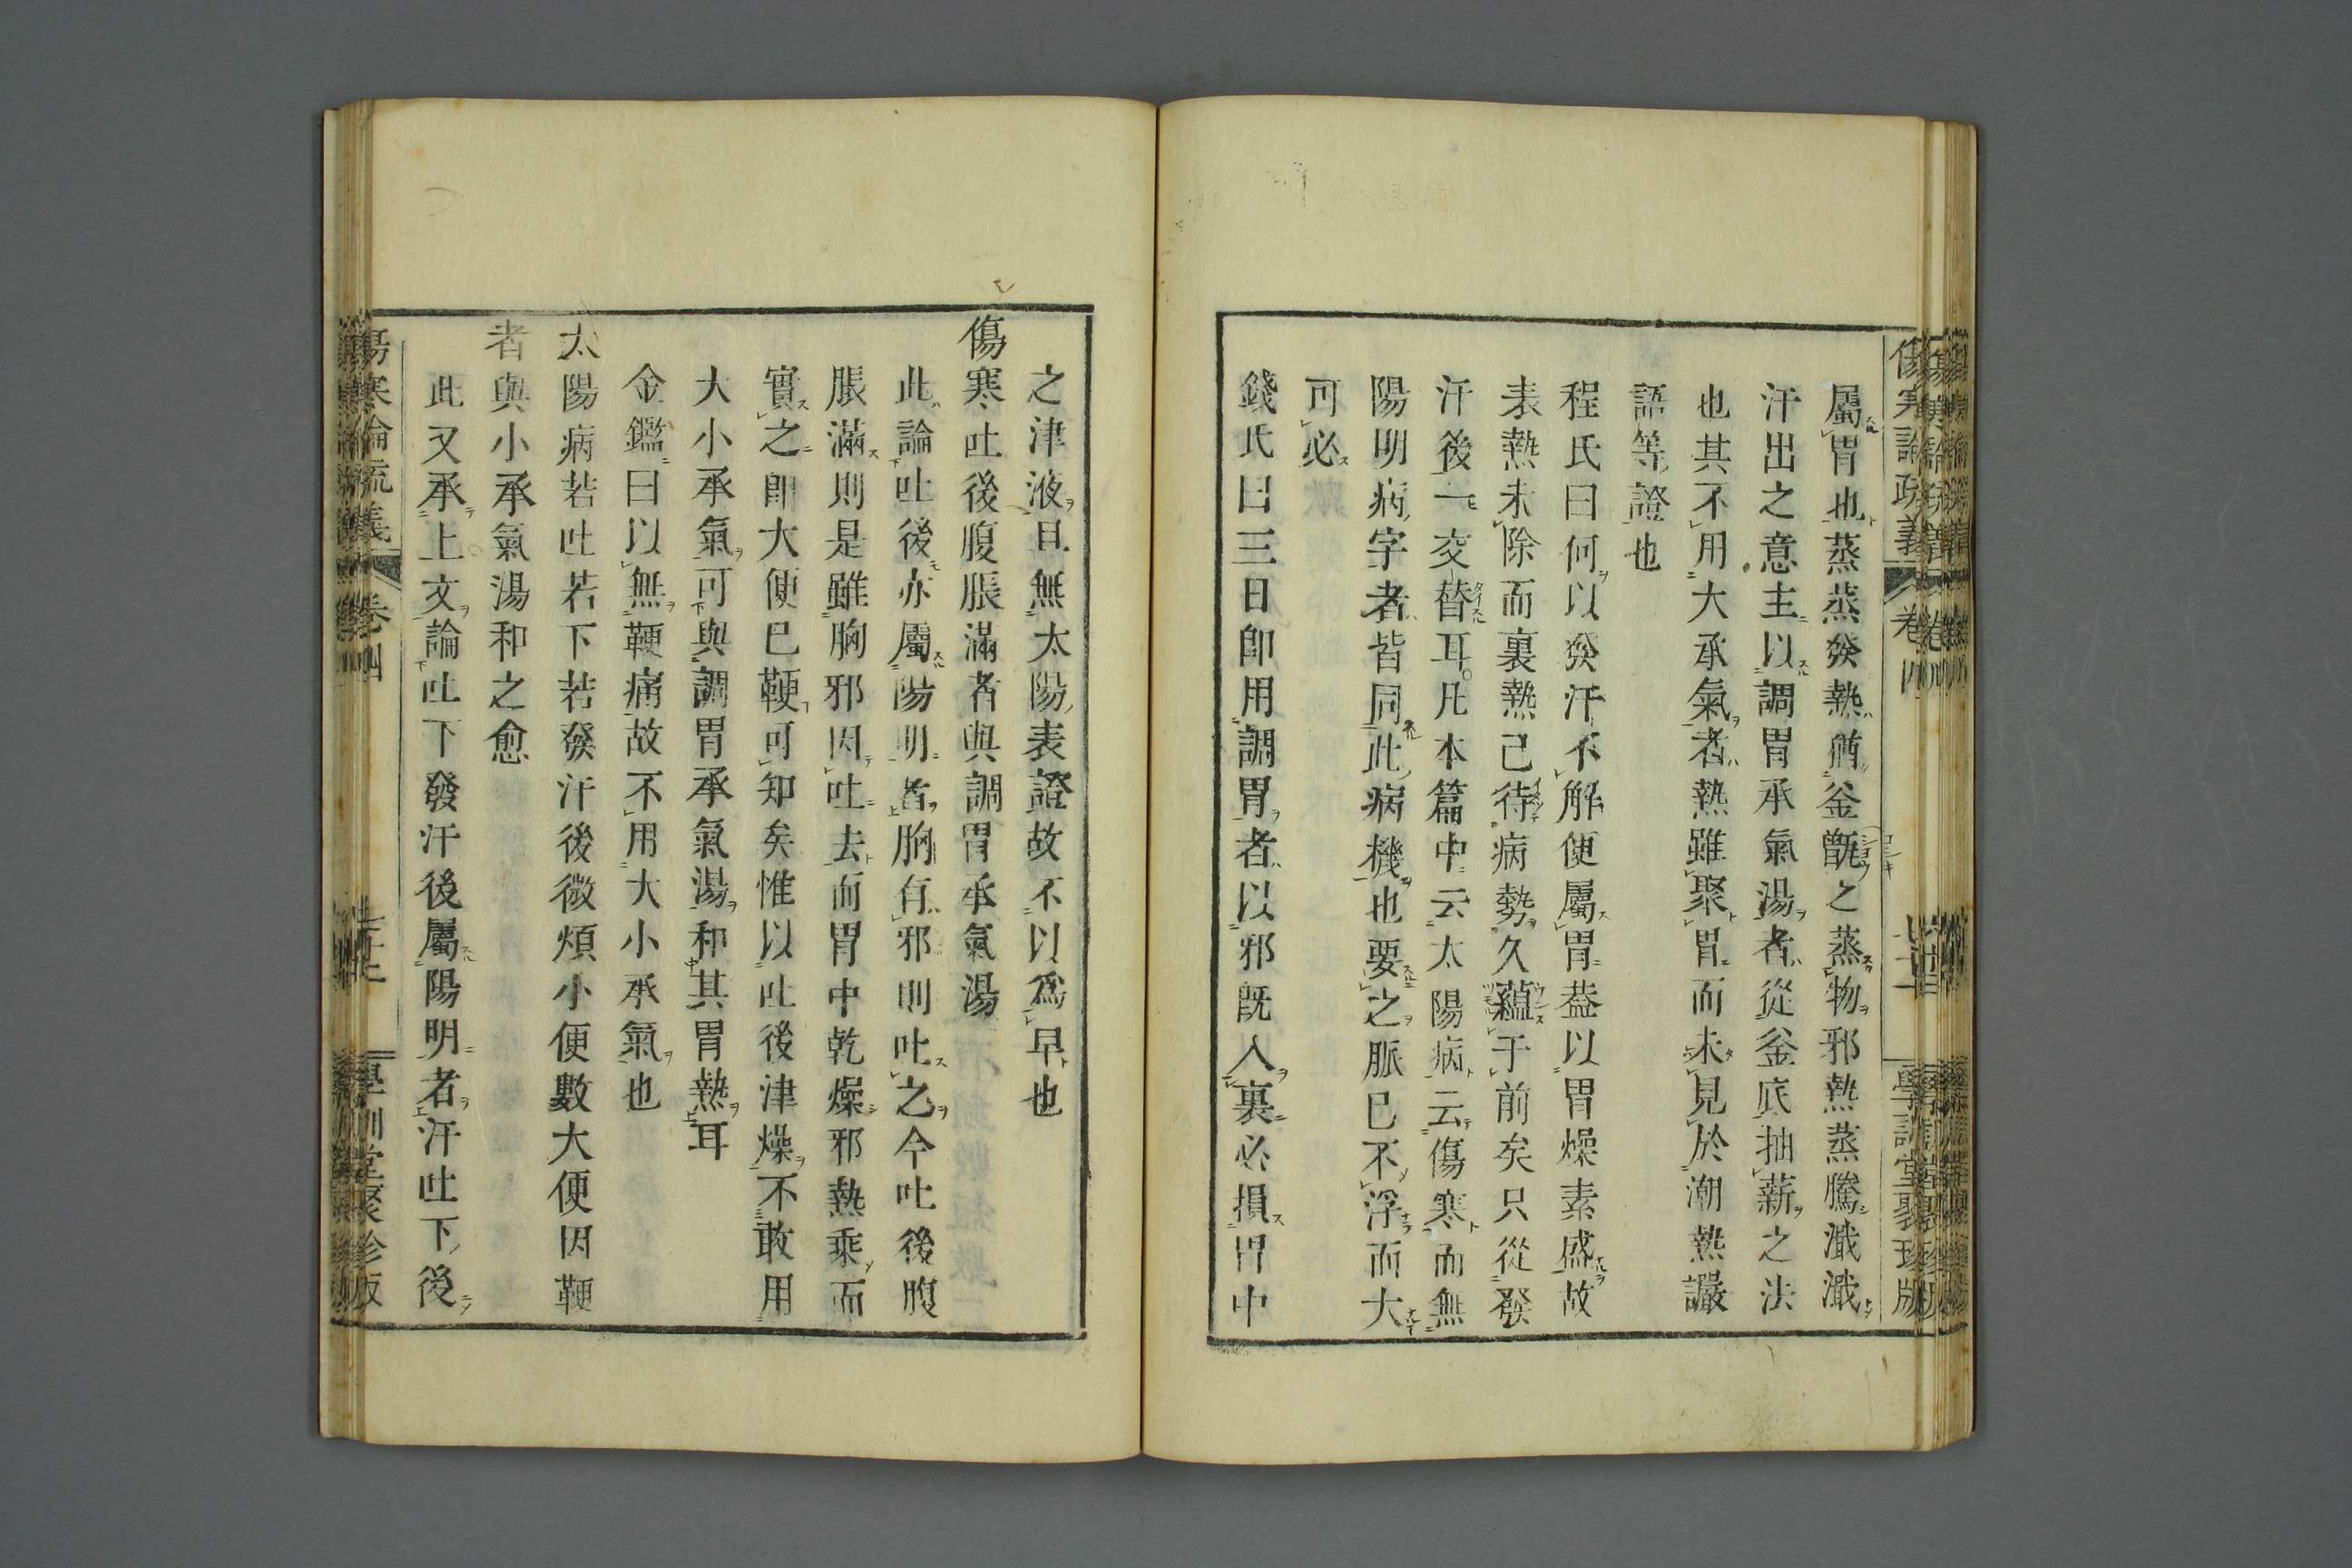 屬胃也蒸蒸發熱猶釜甑之蒸物邪熱蒸騰濈濈
汗出之意主以調胃承氣湯者從釜底抽薪之法
也其不用大承氣者熱雖聚胃而未見於潮熱讝
語等證也
程氏曰何以發汗不解便屬胃葢以胃燥素盛故
表熱未除而裏熱已待病勢久蘊于前矣只從發
汗後一交替耳凡本篇中云太陽病云傷寒而無
陽明病字者皆同此病機也要之脈已不浮而大
可必
錢氏曰三日卽用調胃者以邪旣入裏必損胃中
之津液且無太陽表證故不以爲早也
傷寒吐後腹脹滿者與調胃承氣湯
此論吐後亦屬陽明者胸有邪則吐之今吐後腹
脹滿則是雖胸邪因吐去而胃中乾燥邪熱乘而
實之卽大便已鞕可知矣惟以吐後津燥不敢用
大小承氣可與調胃承氣湯和其胃熱耳
金鑑曰以無鞕痛故不用大小承氣也
太陽病若吐若下若發汗後微煩小便數大便因鞕
者與小承氣湯和之愈
此又承上文論吐下發汗後屬陽明者汗吐下後
傷寒論疏義 卷四 學訓堂聚珍版